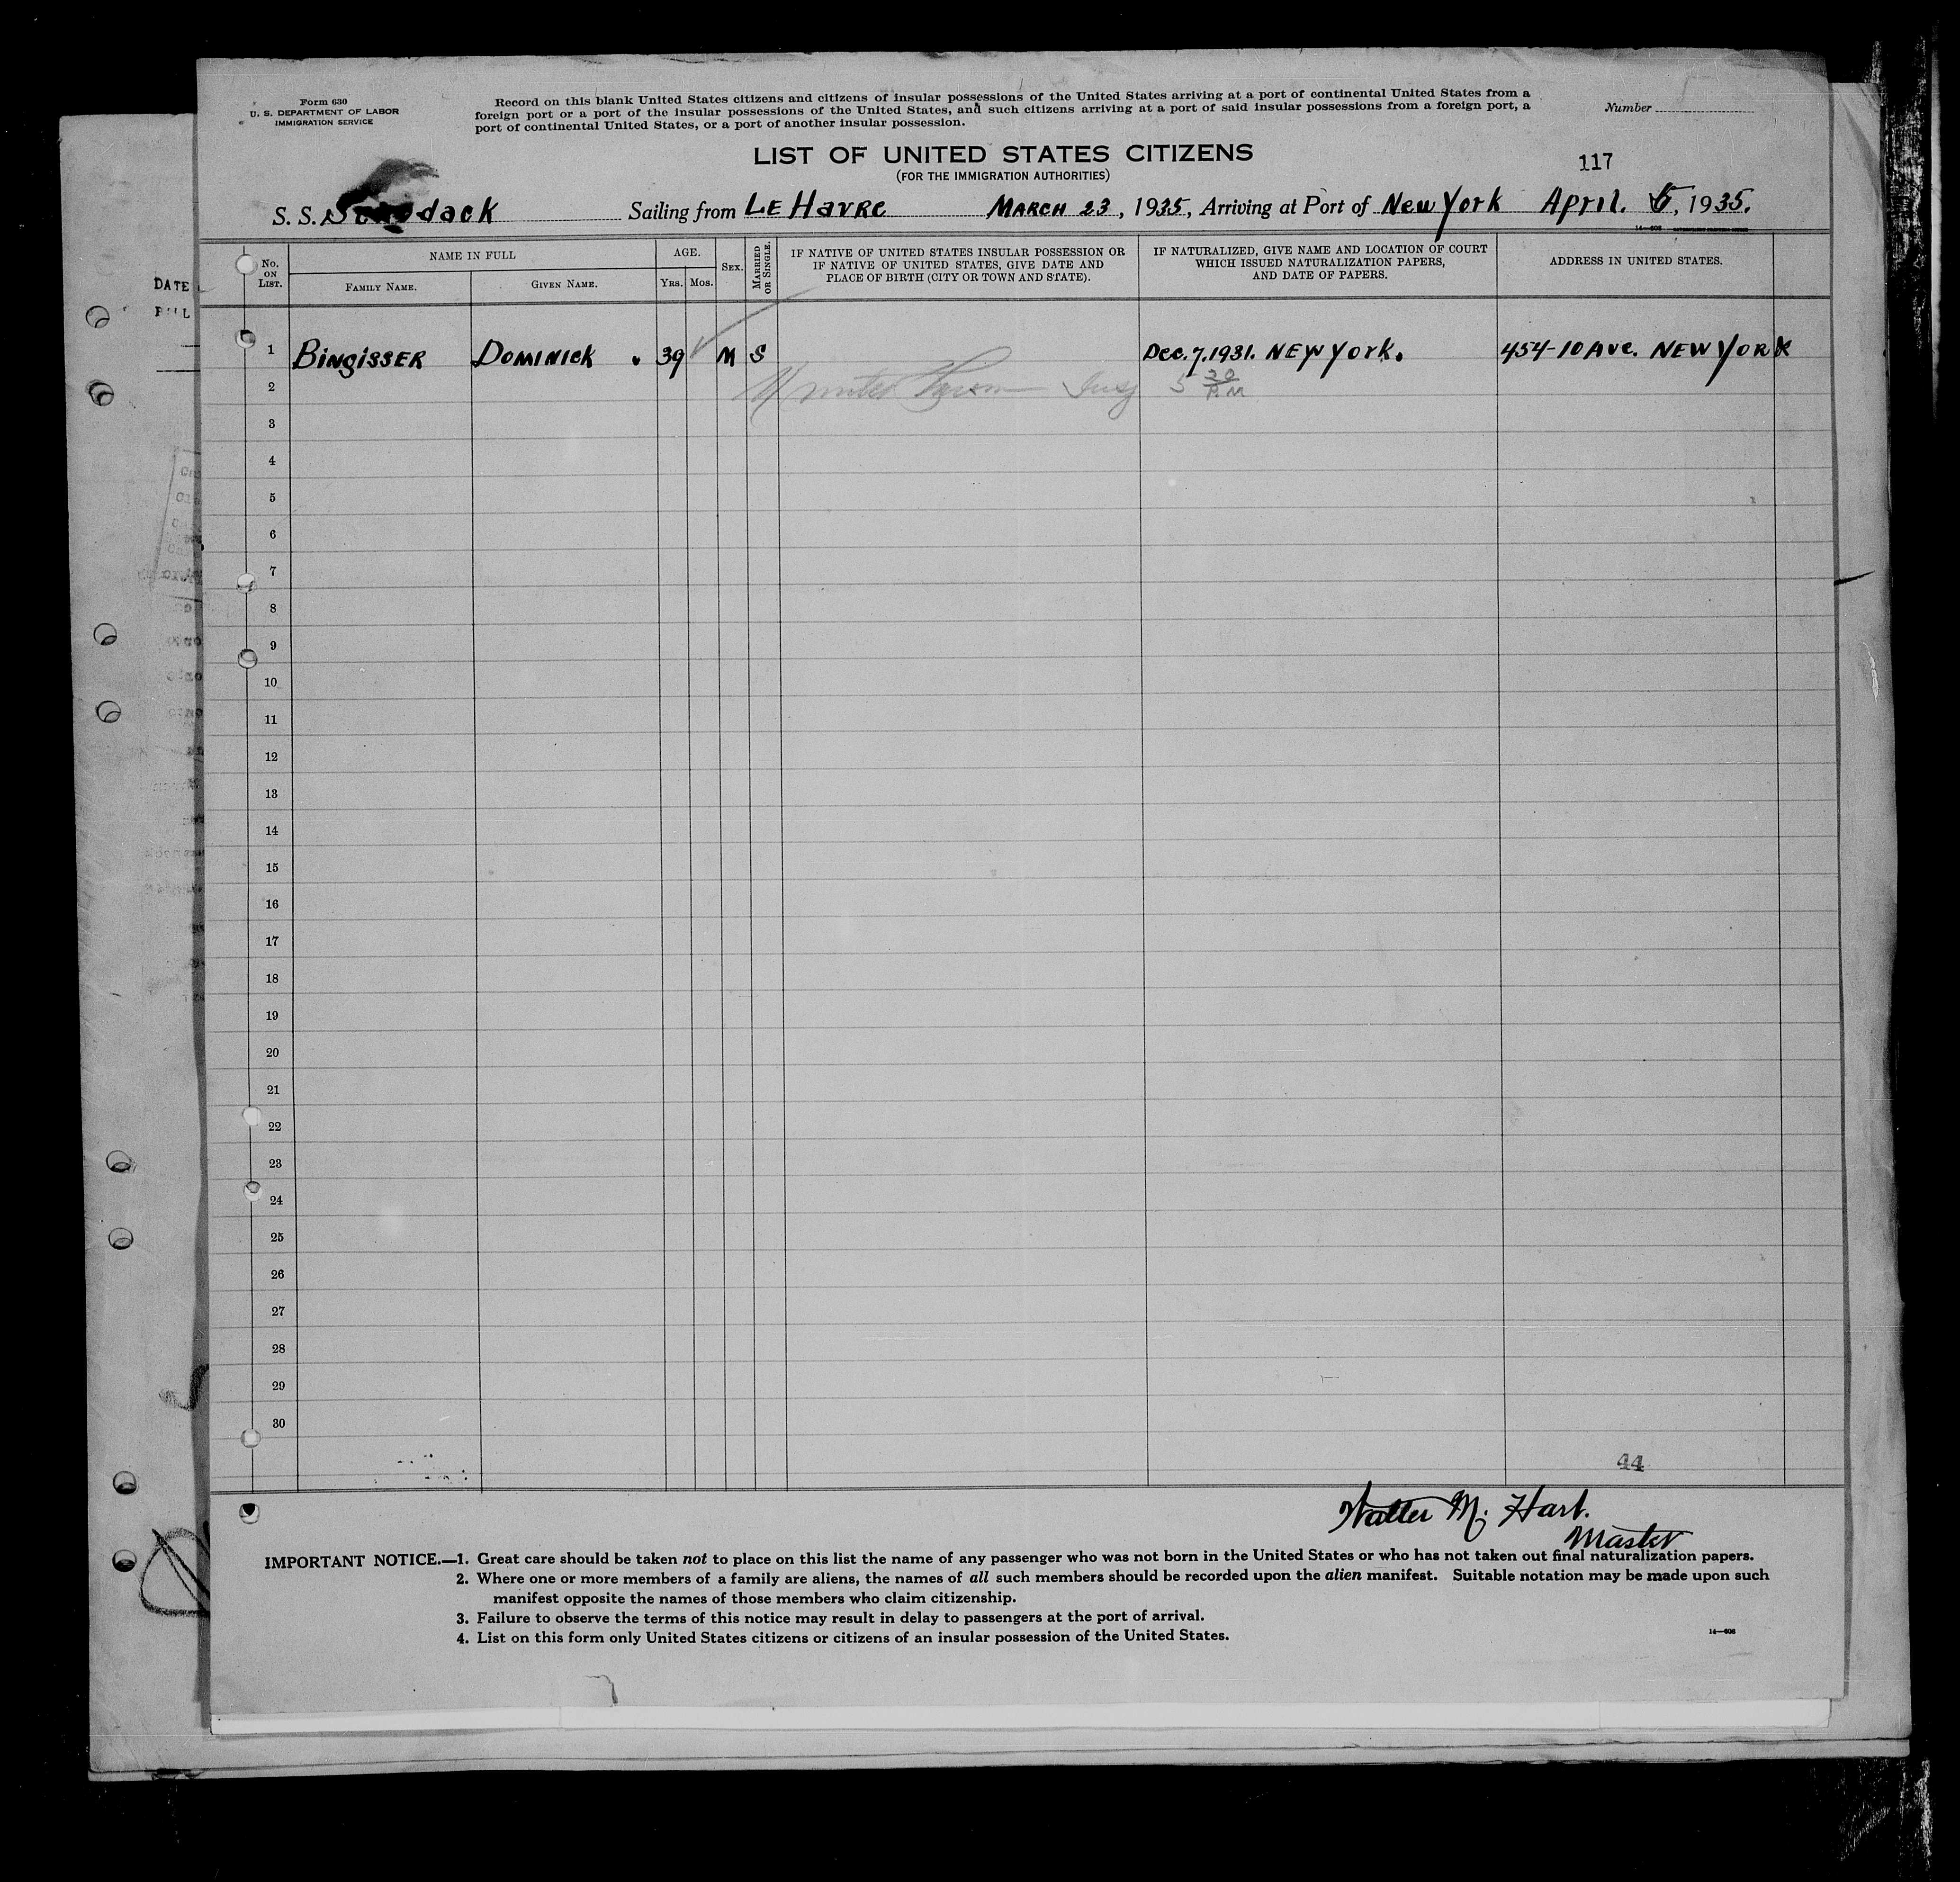 Form 630
U. S. DEPARTMENT OF LABOR
IMMIGRATION SERVICE
Record on this blank United States citizens and citizens of insular possessions of the United States arriving at a port of continental United States from a
foreign port or a port of the insular possessions of the United States, and such citizens arriving at a port of said insular possessions from a foreign port, a
port of continental United States, or a port of another insular possession.
Number
LIST OF UNITED STATES CITIZENS
(FOR THE IMMIGRATION AUTHORITIES)
117
S. S. Sailing from LE HAVRE MARCH 23, 1935, Arriving at Port of New York April. 1935.
14—608
No. ON LIST.
NAME IN FULL
FAMILY NAME.
GIVEN NAME.
AGE.
YRS.
MOS.
SEX.
MARRIED OR SINGLE.
IF NATIVE OF UNITED STATES INSULAR POSSESSION OR
IF NATIVE OF UNITED STATES, GIVE DATE AND
PLACE OF BIRTH (CITY OR TOWN AND STATE).
IF NATURALIZED, GIVE NAME AND LOCATION OF COURT
WHICH ISSUED NATURALIZATION PAPERS,
AND DATE OF PAPERS.
ADDRESS IN UNITED STATES.
DATE
1 BINGISSER DOMINICK . 39 M S Dec. 7. 1931. NEW York. 454-10 Ave. NEW YORK
2 5 30 P.M
3
4
5
6
7
8
9
10
11
12
13
14
15
16
17
18
19
20
21
22
23
24
25
26
27
28
29
30
44
Walter M. Hart.
Master
IMPORTANT NOTICE.—1. Great care should be taken not to place on this list the name of any passenger who was not born in the United States or who has not taken out final naturalization papers.
2. Where one or more members of a family are aliens, the names of all such members should be recorded upon the alien manifest. Suitable notation may be made upon such
manifest opposite the names of those members who claim citizenship.
3. Failure to observe the terms of this notice may result in delay to passengers at the port of arrival.
4. List on this form only United States citizens or citizens of an insular possession of the United States.
14—608